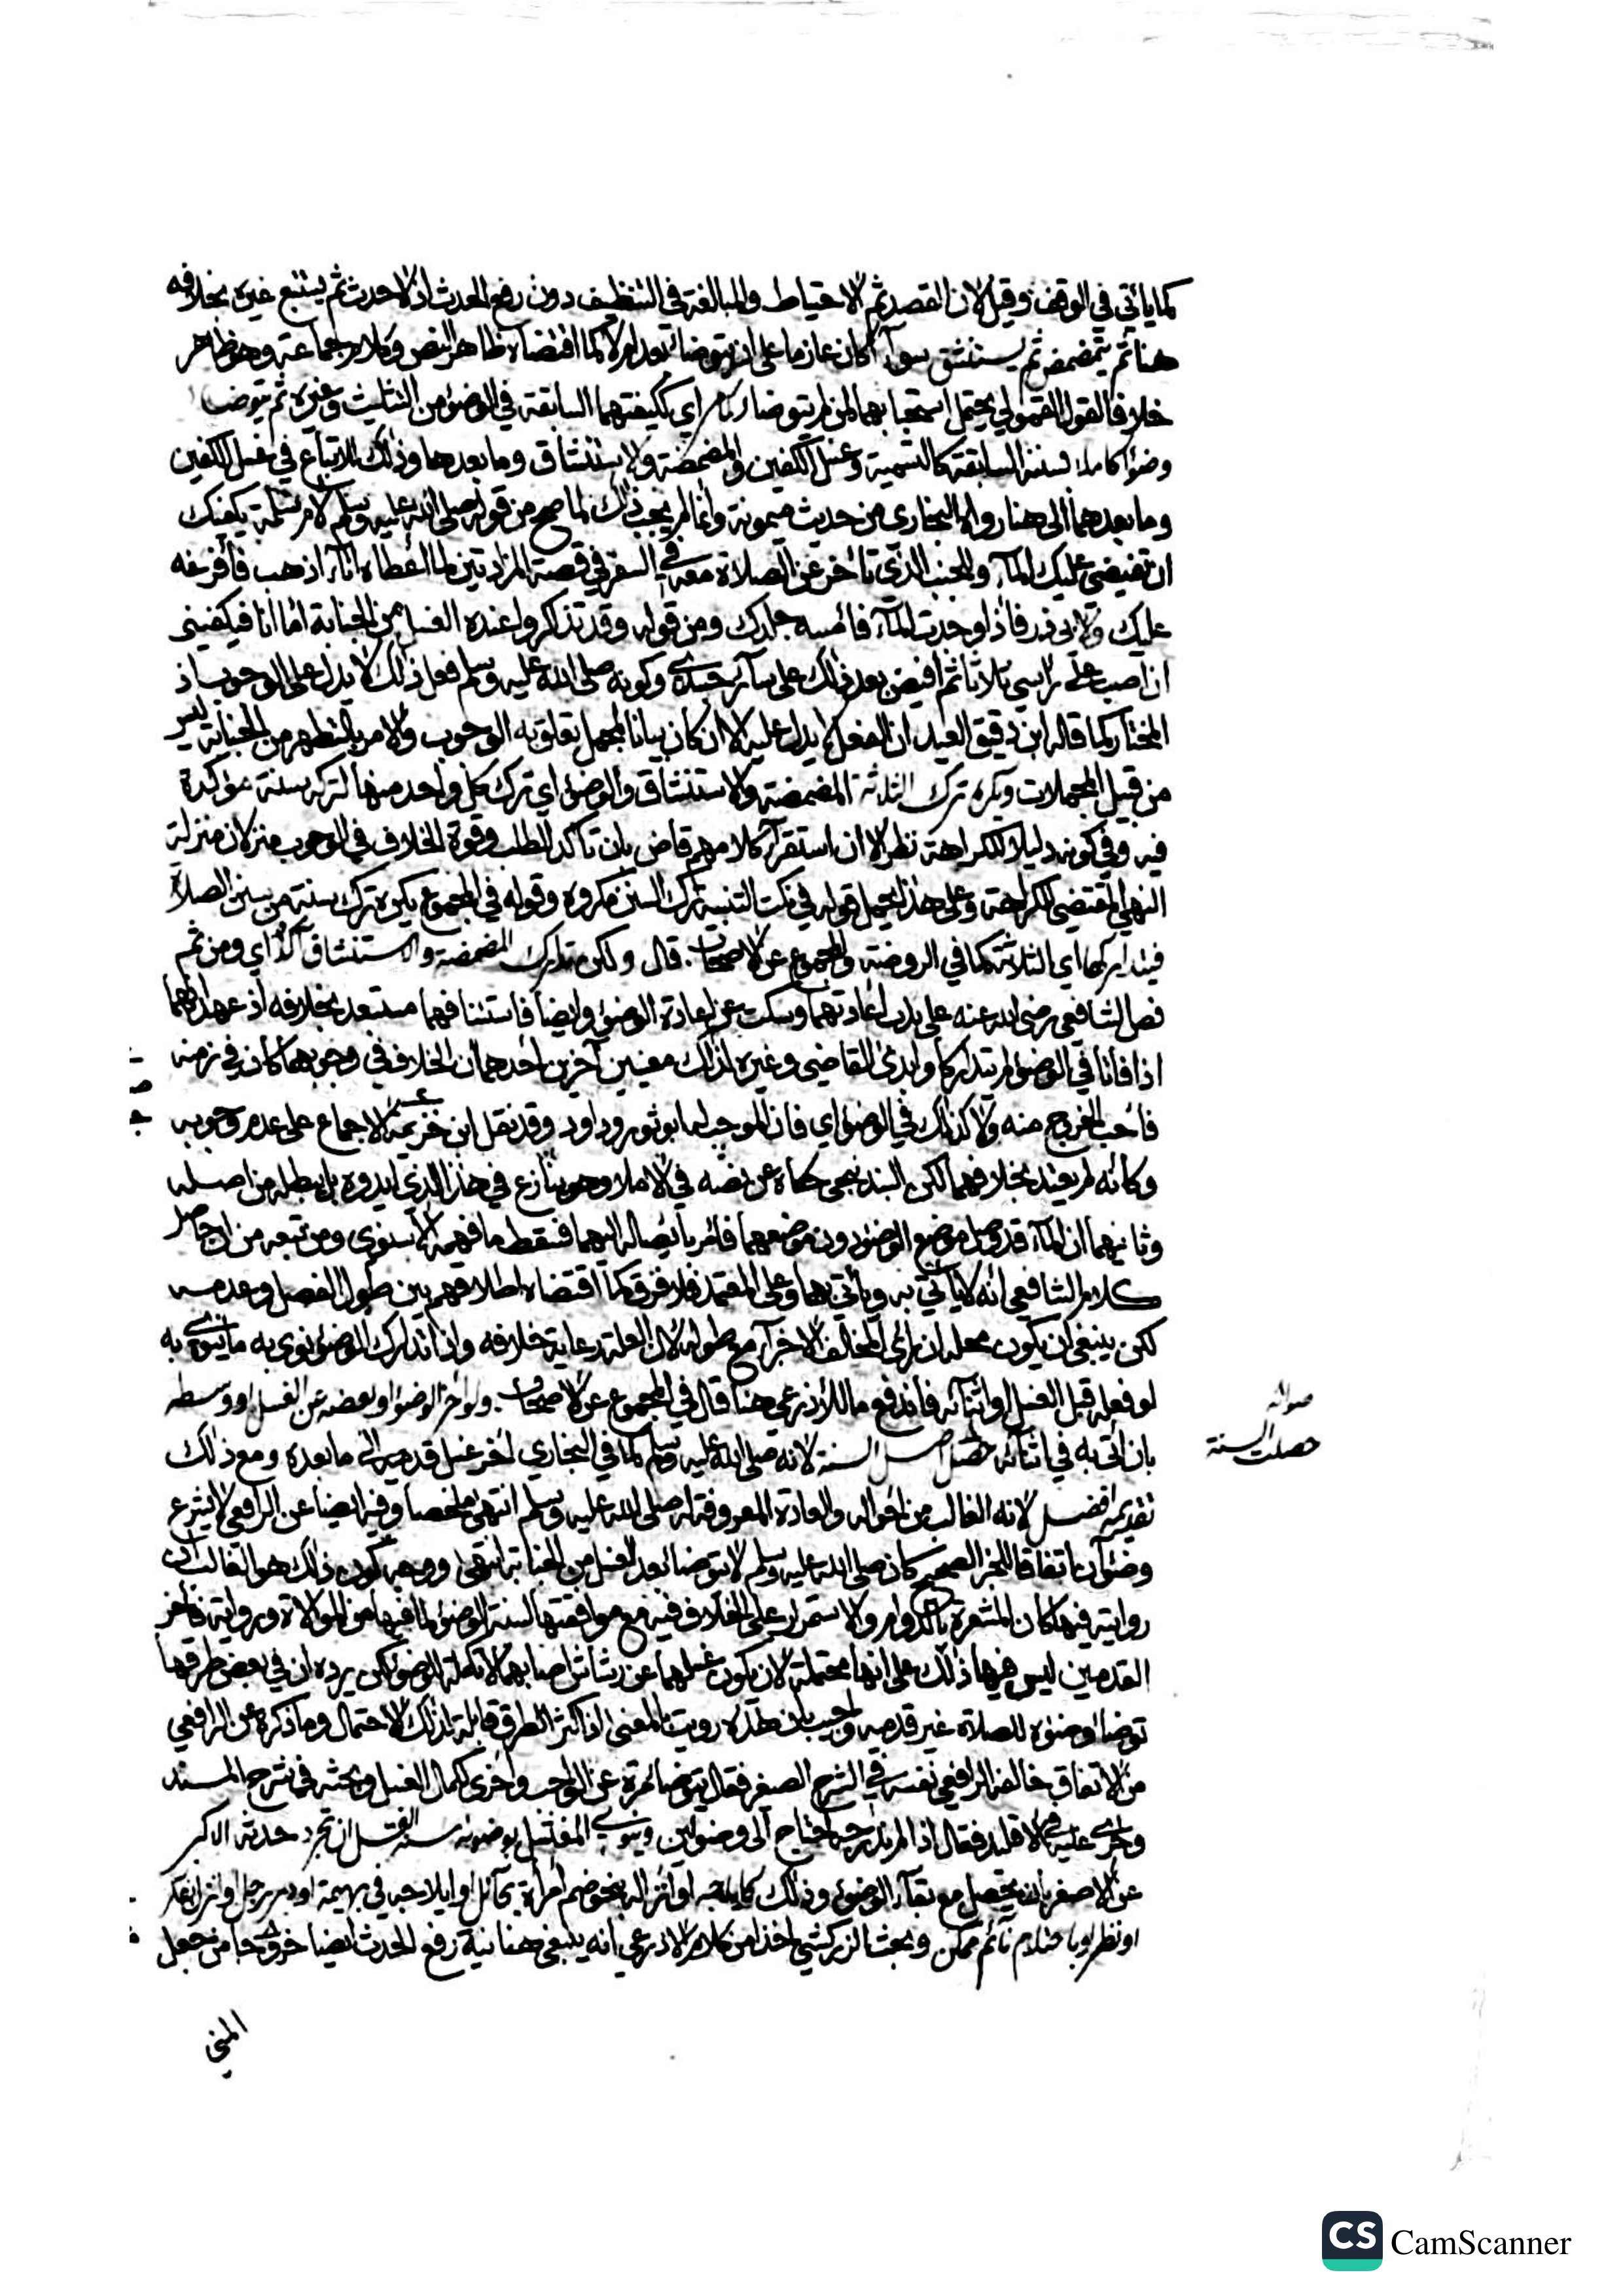 كما يأتي في الوقف وقيل لان القصد ثم الاحتياط والمبالغة في التنظيف دون رفع الحدث اذ لا حدث ثم يستتبع غيره بخلافه
هنا ثم يتمضمض ثم يستنشق سوآء أكان عازما على ان يتوضا بعد ام لا كما اقتضاه ظاهر النص وكلام جماعة وهو ظاهر
خلافا لقول القمولي يحتمل استحبابهما لمن لم يتوضا اي ككيفيتهما السابقة في الوضوء من التثليث وغيره ثم يتوضا
وضوءا كاملا بسننه السابقة كالتسمية وغسل الكفين والمضمضة والاستنشاق وما بعدها وذلك للاتباع في غسل الكفين
وما بعدهما الى هنا رواه البخاري من حديث ميمونة وانما لم يجب ذلك لما صح من قوله صلى الله عليه وسلم لام سلمة يكفيك
ان تفيضي عليك المآء وللجنب الذي تأخر عن الصلاة معه في السفر في قصة المزادتين لما اعطاه انآء اذهب فأفرغه
عليك ولابي ذر فاذا وجدت المآء فأمسه جلدك ومن قوله وقد تذاكروا عنده الغسل من الجنابة امّا انا فيكفيني
ان اصب على رأسي ثلاثا ثم افيض بعد ذلك على سآئر جسدي وكونه صلى الله عليه وسلم فعل ذلك لا يدل على الوجوب اذ
المختار كما قاله ابن دقيق العيد ان الفعل لا يدل عليه الا ان كان بيانا لمجمل تعلق به الوجوب والامر بالتطهر من الجنابة ليس
من قبيل المجملات ويكره ترك الثلاثة المضمضة والاستنشاق والوضوء اي ترك كل واحد منها لتركه سنة مؤكدة
فيه وفي كونه دليلا للكراهة نظر الا ان استقرآء كلامهم قاض بان تأكد الطلب وقوة الخلاف في الوجوب منزلان منزلة
النهي المقتضي للكراهة وعلى هذا يحمل قوله في نكت التنبيه ترك السنن مكروه وقوله في المجموع يكره ترك سنة من سنن الصلاة
فيتداركها اي الثلاثة كما في الروضة والمجموع عن الاصحاب قال ولكن تدارك المضمضة والاستنشاق آكد اي ومن ثم
نص الشافعي رضي الله عنه على ندب اعادتهما وسكت عن اعادة الوضوء وايضا فاستئنافهما مستبعد بخلافه اذ عهد انهما
اذا فاتا في الوضوء لم يتداركا وابدى القاضي وغيره لذلك معنيين آخرين احدهما ان الخلاف في وجوبهما كان في زمنه
فأحب الخروج منه ولا كذلك في الوضوء اي فان الموجب له ابو ثور وداود وقد نقل ابن خزيمة الاجماع على عدم وجوبه
وكأنه لم يعتد بخلافهما لكن البندنيجي حكاه عن نصه في الاملاء وهو ينازع في هذا الذي ابدوه بل يبطله من اصله
وثانيهما ان المآء قد وصل موضع الوضوء دون موضعهما فأمر بايصاله اليهما فسقط ما فهمه الاسنوي ومن تبعه من ان حاصل
كلام الشافعي انه لا يأتي به ويأتي بهما وعلى المعتمد فلا فرق كما اقتضاه اطلاقهم بين طول الفصل وعدمه
لكن ينبغي ان يكون محله ان رأى المخالف الاجزآء مع طوله لان العلة رعاية خلافه واذا تدارك الوضوء نوى به ما ينوي به
لو فعله قبل الغسل او اثنآئه فاندفع ما للاذرعي هنا قال في المجموع عن الاصحاب ولو اخر الوضوء او بعضه عن الغسل او وسطه
صوابه
حصلت السنة
بان اتى به في اثنآئه حصل اصل السنة لانه صلى الله عليه وسلم كما في البخاري اخر غسل قدميه الى ما بعده ومع ذلك
تقديمه افضل لانه الغالب من احواله والعادة المعروفة له صلى الله عليه وسلم انتهى ملخصا وفيه ايضا عن الرافعي لا يشرع
وضوءان اتفاقا للخبر الصحيح كان صلى الله عليه وسلم لا يتوضا بعد الغسل من الجنابة انتهى ووجه كون ذلك هو الغالب ان
رواية فيها كان المشعرة بالدوام والاستمرار على الخلاف فيه مع موافقتها لسنة الوضوء لما فيها من الموالاة ورواية تأخر
القدمين ليس فيها ذلك على انها محتملة لان يكون غسلهما عن رشاش اصابهما لا تكملة للوضوء لكن يرده ان في بعض طرقها
توضا وضوءه للصلاة غير قدميه واجيب بان هذه رويت بالمعنى اذ اكثر الطرق قابلة لذلك الاحتمال وما ذكره عن الرافعي
من الاتفاق خالفه الرافعي نفسه في الشرح الصغير فقال يتوضا مرة عن الواجب واخرى لكمال الغسل وبحثه في شرح المسند
وجرى عليه في الاقليد فقال اذا لم يندرج احتاج الى وضوئين وينوي المغتسل بوضوئه سنة الغسل ان تجرد حدثه الاكبر
عن الاصغر بان يحصل مع بقآء الوضوء وذلك كايلاجه او انزاله بنحو ضم امرأة بحآئل او ايلاجه في بهيمة او دبر رجل او انزل بفكر
او نظر او باحتلام نآئم ممكن وبحث الزركشي اخذا من كلام الاذرعي انه ينبغي هنا نية رفع الحدث ايضا خروجا من جعل
المني
CS CamScanner